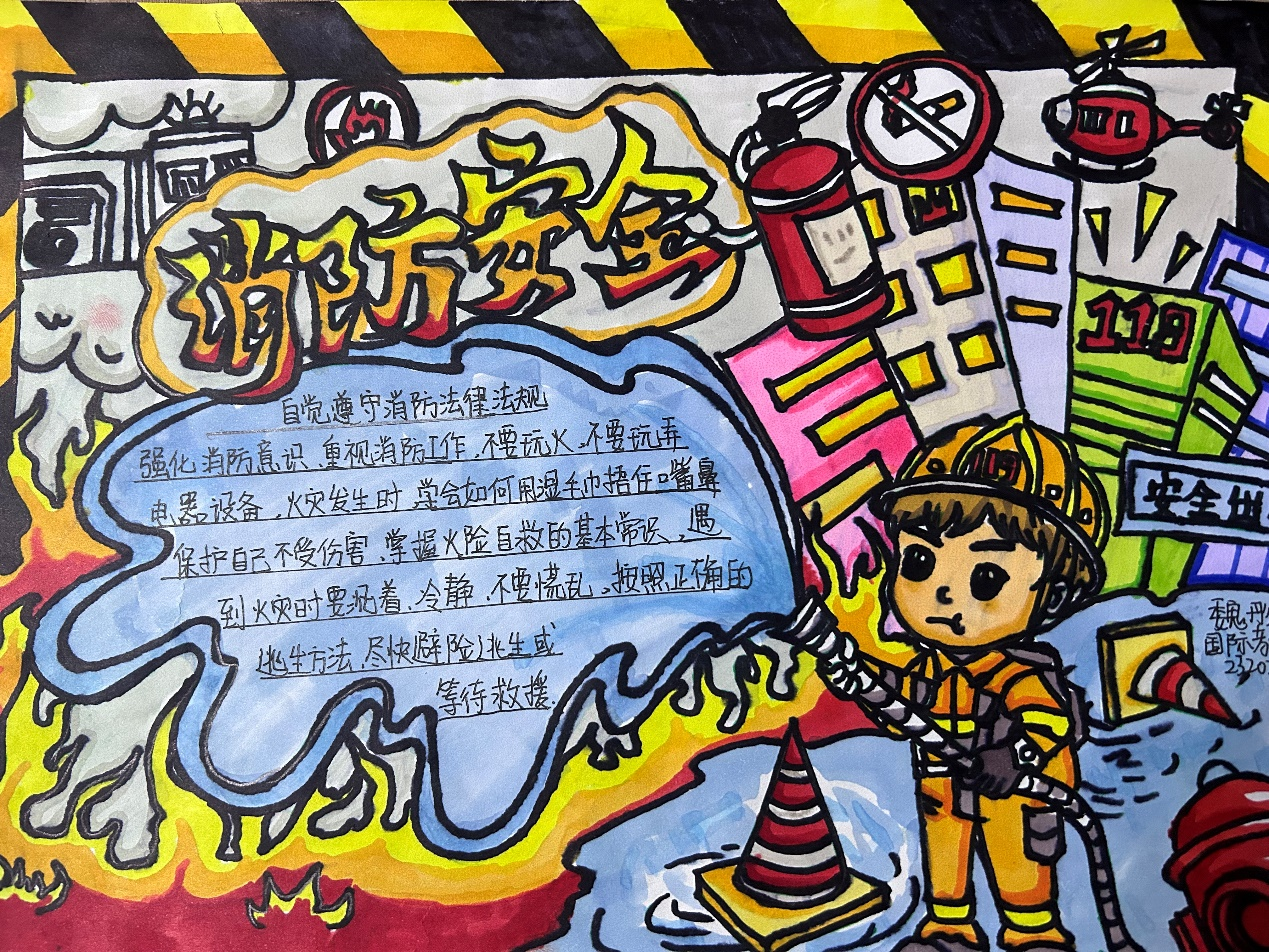 消防安全
119
自觉遵守消防法律法规
强化消防意识、重视消防工作、不要玩火、不要玩弄
电器设备、火灾发生时、学会如何用湿毛巾捂住口嘴鼻
保护自己不受伤害、掌握火险自救的基本常识、遇
到火灾时要沉着、冷静、不要慌乱、按照正确的
逃生方法、尽快避险逃生或
等待救援.
119
安全出
魏彤
国际